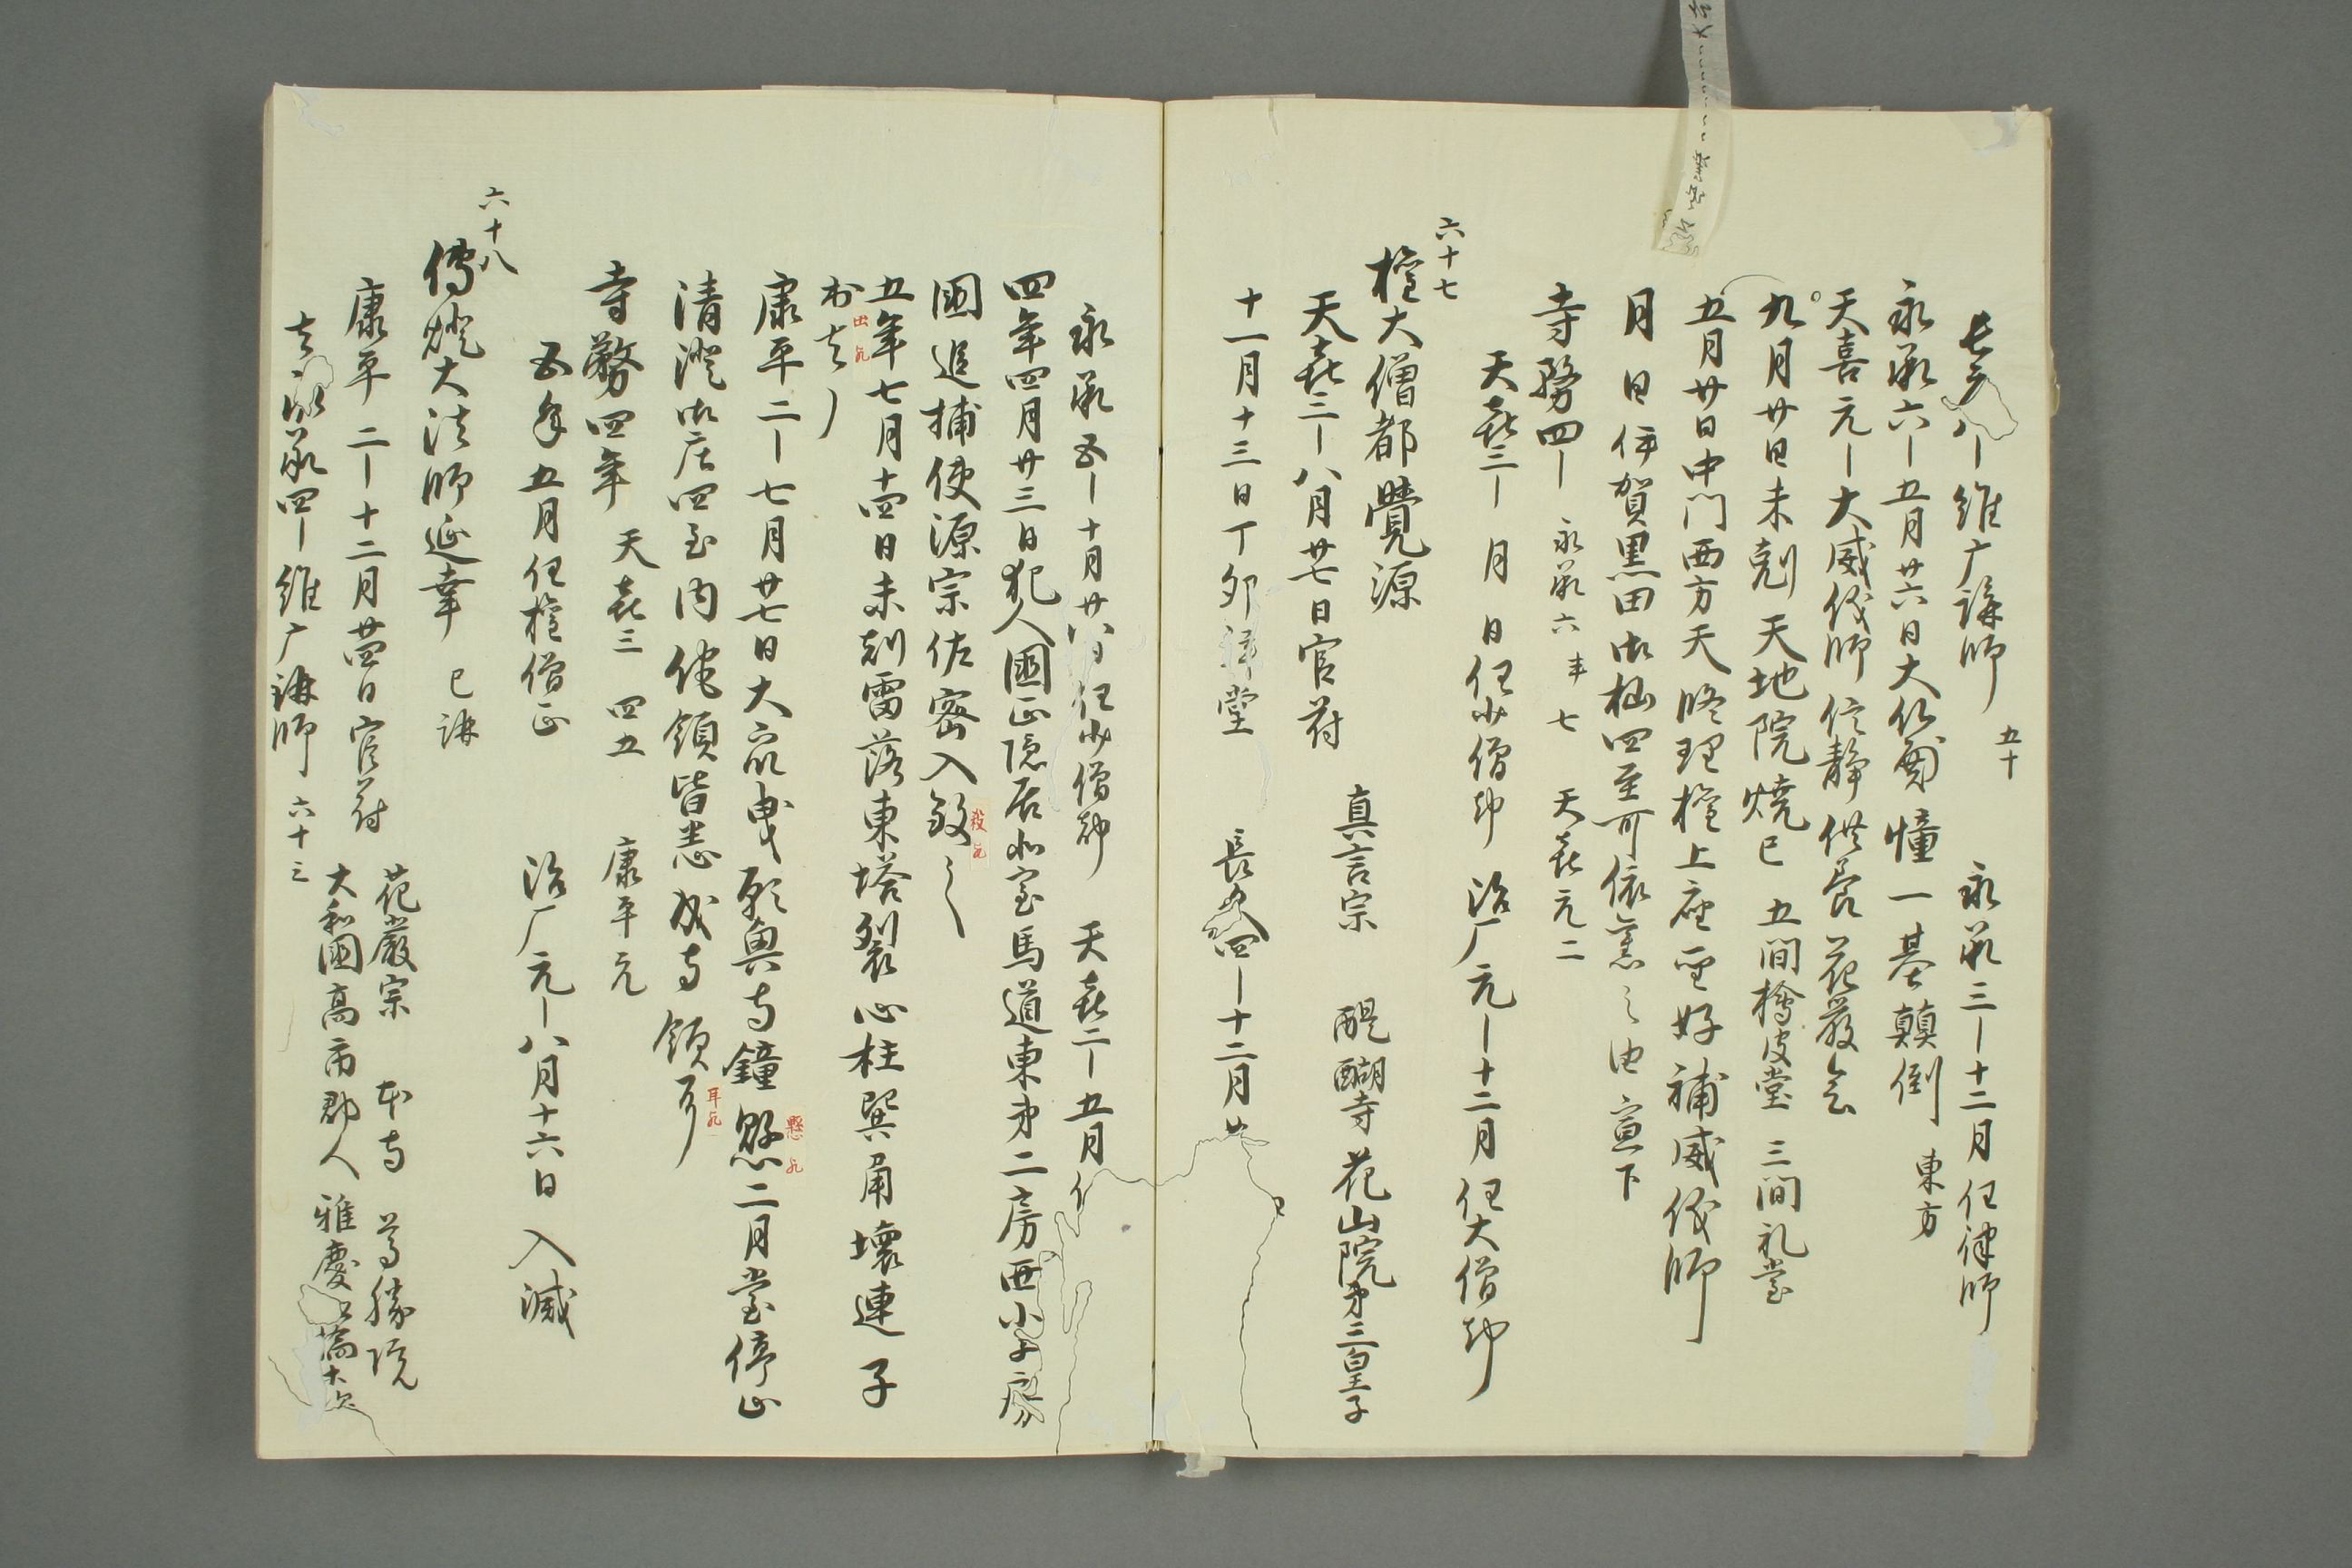 長〻八｜維广講師 五十 永承三｜十二月任律師
永承六｜五月廿六日大仏閣幢一基顛倒 東方
天喜元｜大威儀師信静供養花嚴会
九月廿日未剋天地院焼已 五間檜皮堂 三間礼堂
五月廿日中门西方天修理権上座聖好補威儀師
月 日伊賀黒田御杣四至可依舊之由宣下
寺務四｜ 永承六年 七 天喜元二
天喜二｜ 月 日任少僧都 治厂元｜十二月任大僧都
六十七
権大僧都覺源 真言宗 醍醐寺 花山院第三皇子
天喜三｜八月廿七日官苻
十一月十三日丁卯拝堂 長久四｜十二月廿
永承五｜十月廿八日任少僧都 天喜二｜五月
四年四月廿三日犯人國正隠居北室馬道東第二房西小子房
國追捕使源宗佐密入
殺歟
五年七月十四日未剋雷落東塔裂心柱巽角壞連子
出歟
康平二｜七月廿七日大衆曳願興寺鐘懸二月堂停止
懸歟
清澄御庄四至内他領皆悉成寺領了
耳歟
寺務四年 天喜三 四五 康平元
五年五月任権僧正 治厂元｜八月十六日入滅
六十八
傳燈大法師延幸 已講 花嚴宗 本寺 尊勝院
康平二｜十二月廿四日官苻 大和國高市郡人 雅慶
去永承四｜維广講師 六十三